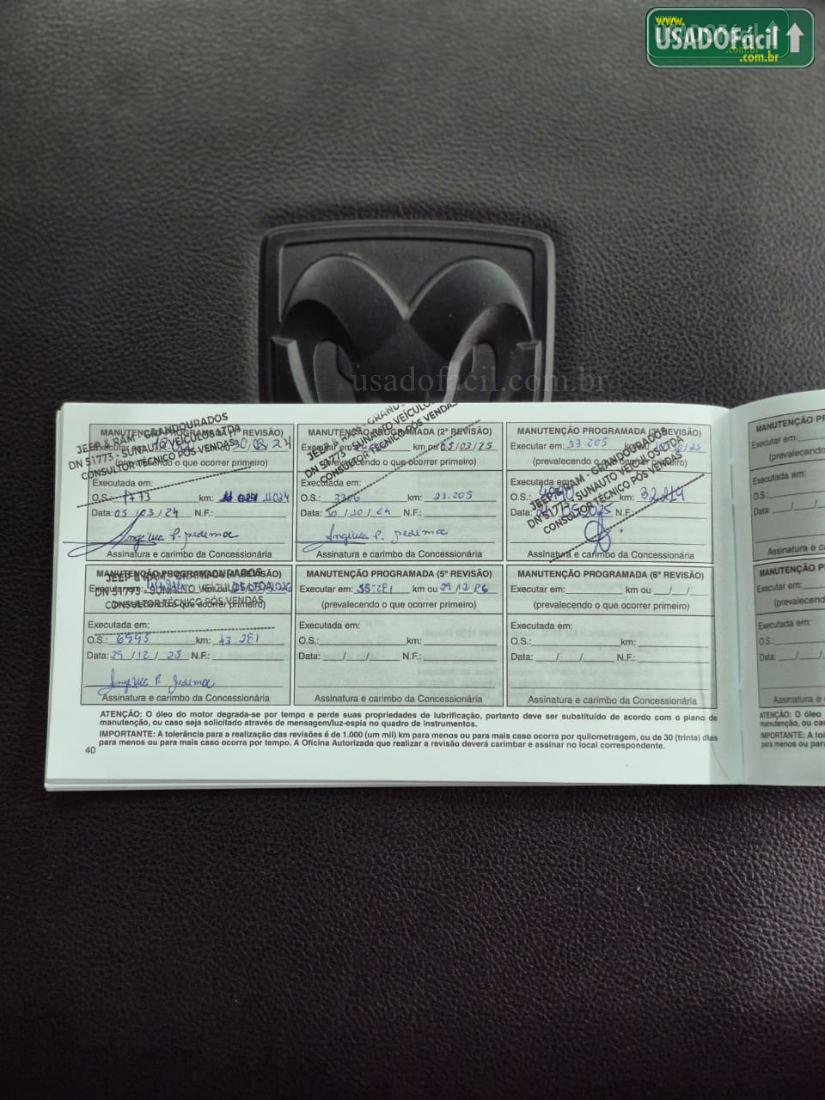 www.
USADOFácil
.com.br
usadofácil.com.br
MANUTENÇÃO PROGRAMADA (1ª REVISÃO)
JEEP & RAM - GRANDOURADOS
DN 51773 - SUNAUTO VEÍCULOS LTDA
CONSULTOR TÉCNICO PÓS VENDAS
(prevalecendo o que ocorrer primeiro)
Executada em:
O.S.: 1773 km: 11024
Data: 05/03/24 N.F.:
Assinatura e carimbo da Concessionária
MANUTENÇÃO PROGRAMADA (2ª REVISÃO)
DN 51773 - SUNAUTO VEÍCULOS
CONSULTOR TÉCNICO PÓS VENDAS
Executar em: km ou 05/03/25
(prevalecendo o que ocorrer primeiro)
Executada em:
O.S.: km: 23.205
Data: 30/10/24 N.F.:
Assinatura e carimbo da Concessionária
MANUTENÇÃO PROGRAMADA (3ª REVISÃO)
Executar em: 33 205 km ou
(prevalecendo o que ocorrer primeiro)
JEEP & RAM - GRANDOURADOS
DN 51773 - SUNAUTO VEÍCULOS LTDA
CONSULTOR TÉCNICO PÓS VENDAS
Executada em:
O.S.: km:
Data: N.F.:
Assinatura e carimbo da Concessionária
MANUTENÇÃO PROGRAMADA (4ª REVISÃO)
JEEP & RAM - GRANDOURADOS
DN 51773 - SUNAUTO VEÍCULOS LTDA
CONSULTOR TÉCNICO PÓS VENDAS
(prevalecendo o que ocorrer primeiro)
Executada em:
O.S.: 6595 km: 43 281
Data: 29/12/25 N.F.:
Assinatura e carimbo da Concessionária
MANUTENÇÃO PROGRAMADA (5ª REVISÃO)
Executar em: 55.281 km ou 29/12/26
(prevalecendo o que ocorrer primeiro)
Executada em:
O.S.: km:
Data: / / N.F.:
Assinatura e carimbo da Concessionária
MANUTENÇÃO PROGRAMADA (6ª REVISÃO)
Executar em: km ou / /
(prevalecendo o que ocorrer primeiro)
Executada em:
O.S.: km:
Data: / / N.F.:
Assinatura e carimbo da Concessionária
ATENÇÃO: O óleo do motor degrada-se por tempo e perde suas propriedades de lubrificação, portanto deve ser substituído de acordo com o plano de
manutenção, ou caso seja solicitado através de mensagem/luz-espia no quadro de instrumentos.
IMPORTANTE: A tolerância para a realização das revisões é de 1.000 (um mil) km para menos ou para mais caso ocorra por quilometragem, ou de 30 (trinta) dias
para menos ou para mais caso ocorra por tempo. A Oficina Autorizada que realizar a revisão deverá carimbar e assinar no local correspondente.
40
MANUTENÇÃO PR
Executar em:
(prevalecendo
Executada em:
O.S.:
Data: / /
Assinatura e c
MANUTENÇÃO PR
Executar em:
(prevalecend
Executada em:
O.S.:
Data: / /
Assinatura e
ATENÇÃO: O óleo
manutenção, ou ca
IMPORTANTE: A tol
para menos ou par